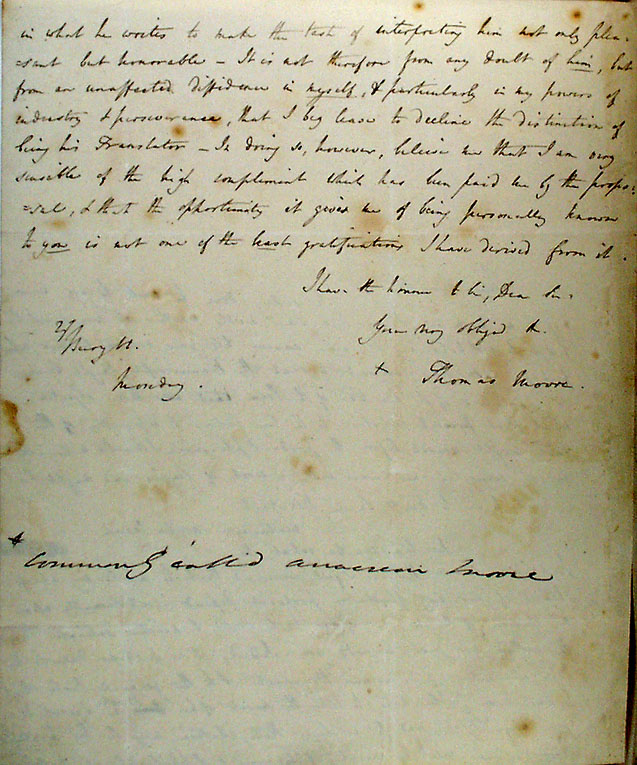 in what he writes to make the task of interpreting him not only plea-
sant but honorable – It is not therefore from any doubt of him, but
from an unaffected diffidence in myself, & particularly in my powers of
industry & perseverance, that I beg leave to decline the distinction of
being his Translator – In doing so, however, believe me that I am very
sensible of the high compliment which has been paid me by the propo=
=sal, & that the opportunity it gives me of being personally known
to you is not one of the least gratifications I have derived from it.
I have the honour to be, Dear Sir,
Your very oblig'd &c.
27 Bury St.
+ Thomas Moore.
Monday.
+ commonly called Anacreon Moore